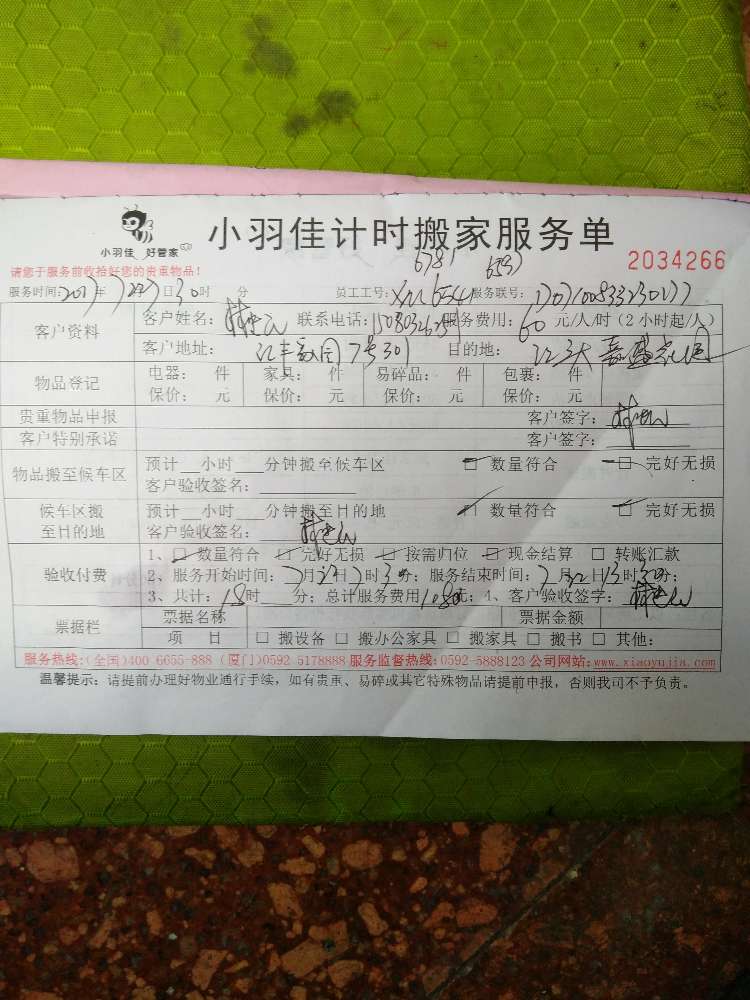 小羽佳 好管家
小羽佳计时搬家服务单
6781 6597
2034266
请您于服务前收拾好您的贵重物品!
服务时间: 年 月 日 30时 分 员工工号: 服务联号:
客户资料
客户姓名: 联系电话: 服务费用: 60 元/人/时(2小时起/人)
客户地址: 7号301 目的地:
物品登记
电器: 件 家具: 件 易碎品: 件 包裹: 件
保价: 元 保价: 元 保价: 元 保价: 元
贵重物品申报 客户签字:
客户特别承诺 客户签字:
物品搬至候车区
预计__小时___分钟搬至候车区 □ 数量符合 □ 完好无损
客户验收签名:
候车区搬至目的地
预计__小时___分钟搬至目的地 □ 数量符合 □ 完好无损
客户验收签名:
验收付费
1、□ 数量符合 □ 完好无损 □ 按需归位 □ 现金结算 □ 转账汇款
2、服务开始时间: 月 日 时 分; 服务结束时间: 月 日 时 分;
3、共计:18时 分; 总计服务费用 1080元; 4、客户验收签字:
票据栏
票据名称 票据金额
项 目 □ 搬设备 □ 搬办公家具 □ 搬家具 □ 搬书 □ 其他:
服务热线:(全国)400 6655-888 (厦门)0592 5178888 服务监督热线:0592-5888123 公司网站:www.xiaoyujia.com
温馨提示: 请提前办理好物业通行手续,如有贵重、易碎或其它特殊物品请提前申报,否则我司不予负责。